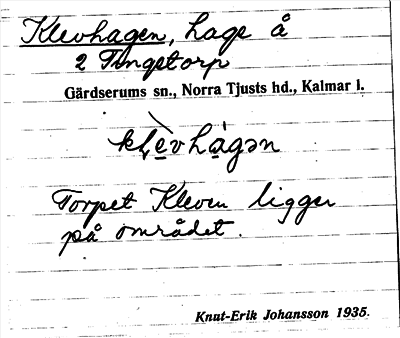 Klevhagen, hage å
2 Tingstorp
Gärdserums sn., Norra Tjusts hd., Kalmar l.
klèvhàgən
Torpet Kleven ligger
på området.
Knut-Erik Johansson 1935.